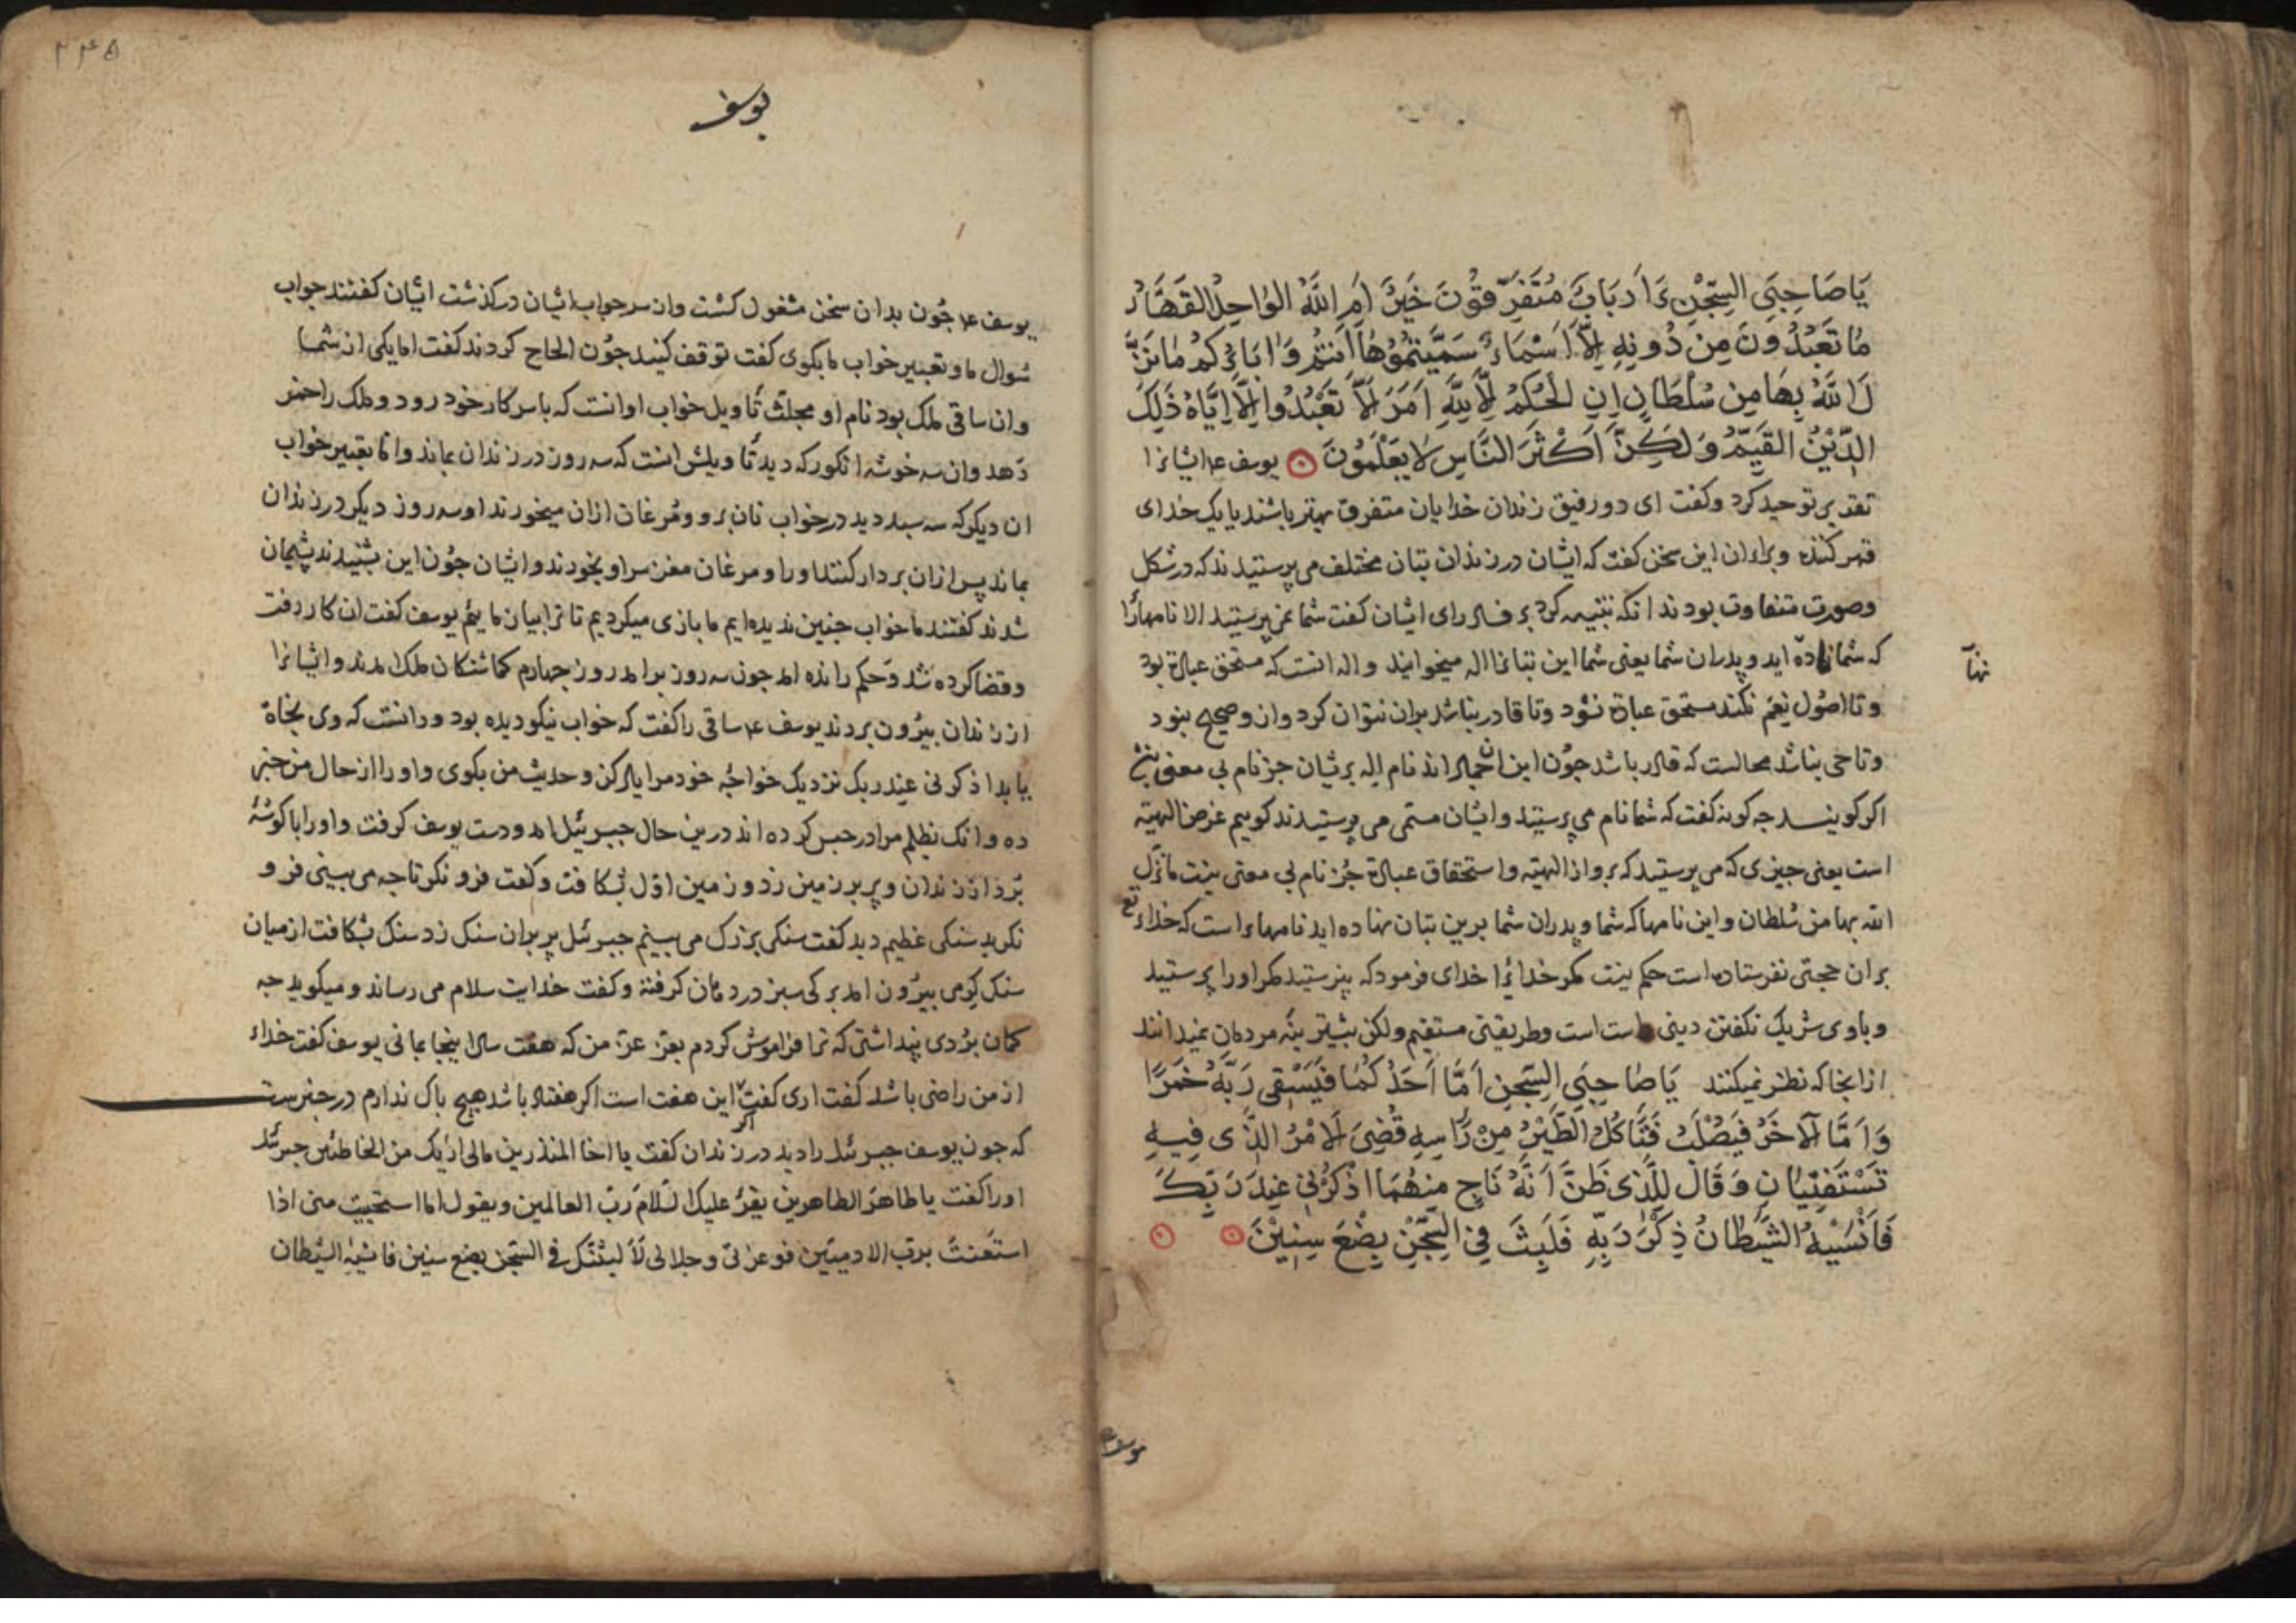 يَا صَاحِبَيِ السِّجْنِ ءَاَرْبَابٌ مُتَفَرِّقُونَ خَيْرٌ اَمِ اللَّهُ الوَاحِدُ القَهَّارُ
مَا تَعْبُدُونَ مِنْ دُونِهِ اِلَّا اَسْمَاءً سَمَّيْتُمُوهَا اَنْتُمْ وَابَاؤُكُمْ مَا نَزَّ
لَ اللَّهُ بِهَا مِن سُلْطَانٍ اِنِ الْحُكْمُ اِلَّا لِلَّهِ اَمَرَ اَلَّا تَعْبُدُوا اِلَّا اِيَّاهُ ذَلِكَ
الدِّيْنُ القَيِّمُ وَلَكِنَّ اَكْثَرَ النَّاسِ لَا يَعْلَمُونَ يوسف ع م ایشانرا
تقدیر توحید کرد و کفت ای دو رفیق زندان خدایان متفرق بهتر باشند یا یک خدای
قهر کننده و برای ان این سخن کفت که ایشان در زندان بتان مختلف می پرستیدند که در شکل
وصورت متفاوت بودند انکه تنبیه کرد بر فساد رای ایشان کفت شما نمی پرستید الا نامهارا
که شما نهاده اید و پدران شما یعنی شما این بتانرا اله میخوانید و اله انست که مستحق عبادة بود
نهآ
و تا اصول نعم نکند مستحق عبادة نشود وتا قادر نباشد بران نتوان کرد وازو صحیح نبود
وتا حی نباشد محالست که قادر باشد جون این جماد اند نام اله بریشان جز نام بی معنی نیست
اکر کویند جه کونه کفت که شما نام می پرستید وایشان مسمی می پرستیدند کوییم غرض الهیة
است یعنی جیزی که می پرستید که برو از الهیة واستحقاق عبادة جز نام بی معنی نیست ما نزل
الله بها من سلطان و این نامها که شما و پدران شما برین بتان نهاده اید نامهاءاست که خداء تع
بران حجتی نفرستاده است حکم نیست مکر خدایرا خدای فرمود که نپرستید مکر اورا پرستید
و باوی شریک نکفتن دینی راست است وطریقتی مستقیم ولکن بیشترینه مردمان نمیدانند
ازانجا که نظر نمیکنند یَا صَاحِبَيِ السِّجْنِ اَمَّا اَحَدُكُمَا فَيَسْقِى رَبَّهُ خَمْرًا
وَاَمَّا الْاَخَرُ فَيُصْلَبُ فَتَأكُلُ الطَّيْرُ مِنْ رَأسِهِ قُضِىَ الْاَمْرُ الَّذِى فِيهِ
تَسْتَفْتِيَانِ وَقَالَ لِلَّذِى ظَنَّ اَنَّهُ نَاجٍ مِنْهُمَا اذْكُرْنِى عِنْدَ رَبِّكَ
فَاَنْسَيهُ الشَّيْطَانُ ذِكْرَ رَبِّهِ فَلَبِثَ فِى السِّجْنِ بِضْعَ سِنِيْنَ
۲۴۵
یوسف
یوسف ع م جون بدان سخن مشغول کشت وان سر جواب ایشان درکذشت ایشان کفتند جواب
سوال ما وتعبیر خواب ما بکوی کفت توقف کنید جون الحاح کردند کفت اما یکی از شما
وان ساقی ملک بود نام او مجلث تأویل خواب او انست که با سر کار خود رود وملک را خمر
دهد وان سه خوشه انکور که دید تأویلش انست که سه روز در زندان بماند واما تعبیر خواب
ان دیکر که سه سبد دید در خواب نان برو ومرغان ازان میخورند او سه روز دیکر در زندان
بماند پس ازان بردار کنند اورا ومرغان مغز سر او بخورند وایشان جون این بشنیدند پشیمان
شدند کفتند ما خواب جنین ندیده ایم ما بازی میکردیم تا ترا بیازماییم یوسف کفت ان کار رفت
وقضا کرده شد وحکم رانده امد جون سه روز برامد روز جهارم کماشتکان ملک امدند وایشانرا
از زندان بیرون بردند یوسف ع م ساقی را کفت که خواب نیکو دیده بود و دانست که وی نجاة
یابد اذکرنی عند ربک نزدیک خواجه خود مرا یاد کن وحدیث من بکوی واورا از حال من خبر
ده وانک بظلم مرا در حبس کرده اند درین حال جبرئیل امد ودست یوسف کرفت واورا با کوشهٔ
برد از زندان و پر بر زمین زد و زمین اول بشکافت وکفت فرو نکر تا جه می بینی فرو
نکرید سنکی عظیم دید کفت سنکی بزرک می بینم جبرئیل پر بران سنک زد سنک بشکافت از میان
سنک کرمی بیرون امد برکی سبز در دهان کرفته وکفت خدایت سلام می رساند ومیکوید جه
کمان بردی پنداشتی که ترا فراموش کردم بعز عز من که هفت سال اینجا بمانی یوسف کفت خداء
از من راضی باشد کفت اری کفت این هفت است اکر هفتاد باشد هیج باک ندارم در خبرست
که جون یوسف جبرئیل را دید در زندان کفت یا اخا المنذرین مالی اریک من الخاطئین جبرئیل
اورا کفت یا طاهر الطاهرین یقرء علیک السلام رب العالمین ویقول اما استحییت منی اذا
استعنت برب الادمیین فوعزتی وجلالی لا لبثنک فی السجن بضع سنین فانسیه الشیطان